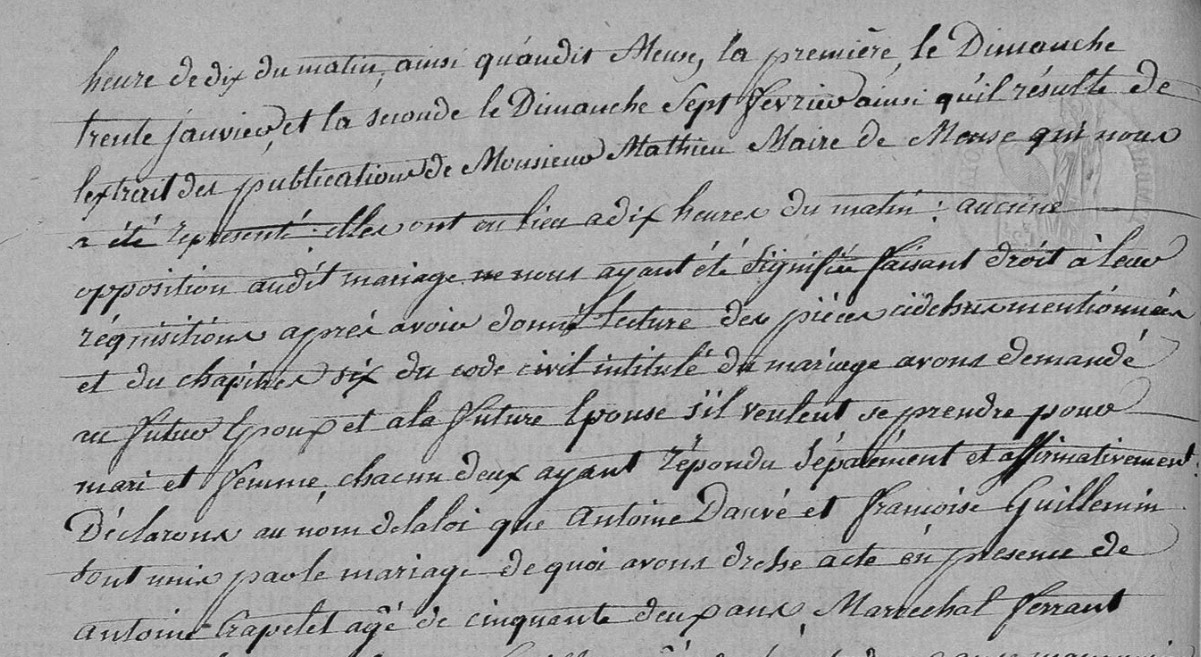 heure de dix du matin, ainsi qu'audit Meuse, la première, le Dimanche
trente janvier, et la seconde le Dimanche Sept fevrier ainsi qu'il résulte de
lextrait des publications de Monsieur Mathieu Maire de Meuse qui nous
a été représenté : elles ont eu lieu a dix heures du matin : aucune
opposition audit mariage ne nous ayant été signifiée faisant droit à leur
réquisitions aprés avoir donné lecture des piéces cidehsus mentionnées
et du chapitres six du code civil intitulé du mariage avons demandé
au futur Epoux et a la future Epouse s'il veulent se prendre pour
mari et femme, chacun deux ayant répondu séparément et affirmativement.
Déclarons au nom de la loi que Antoine Dauvé et françoise Guillemin
sont unis par le mariage de quoi avons drehsé acte en présence de
Antoine Crapelet agé de cinquante deux ans, Marrechal ferrant